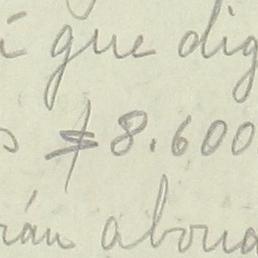 que dig
$8.600
rán abona